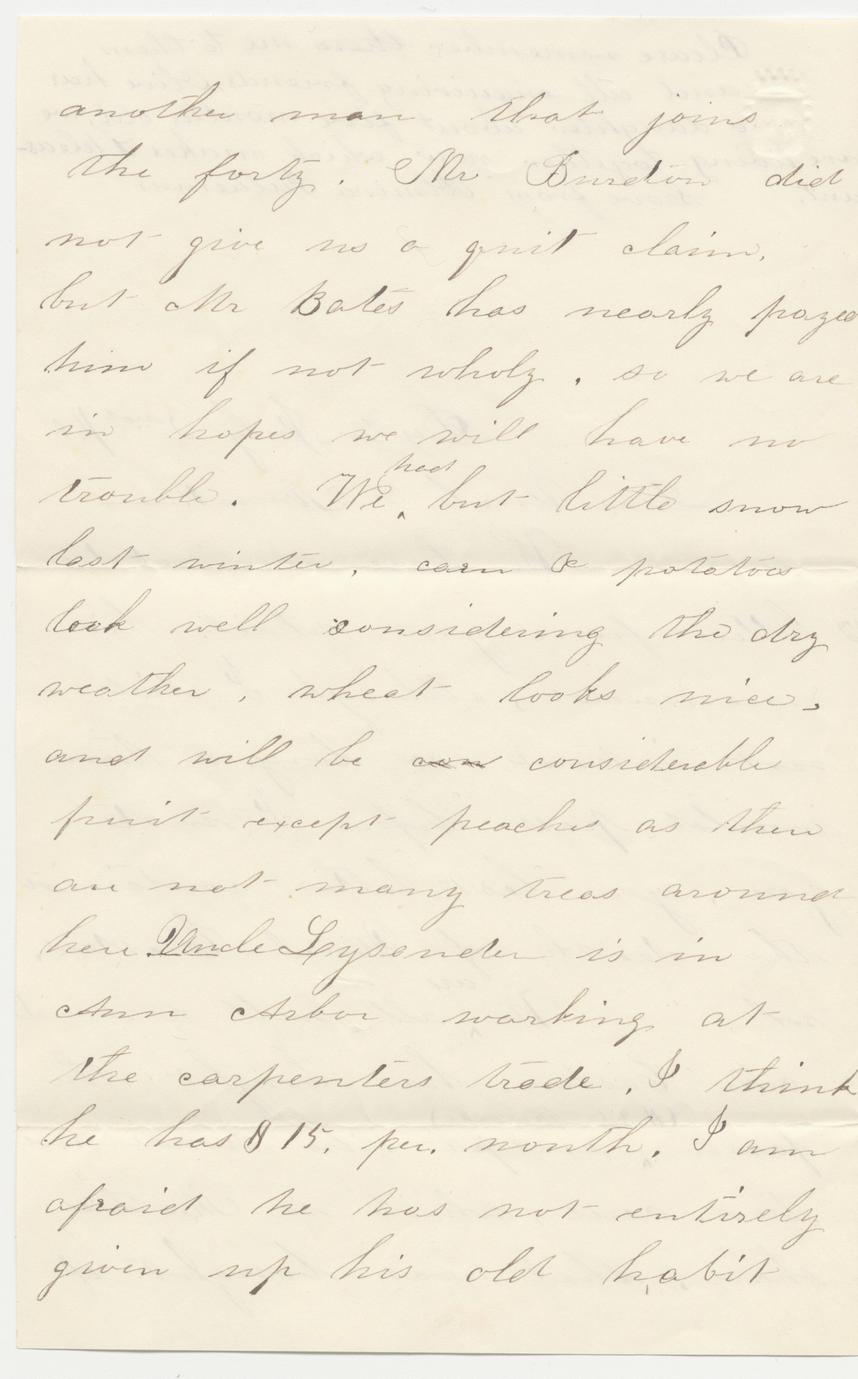 another man that joins
the forty. Mr Burdon did
not give us a quit claim,
but Mr Bates has nearly payed
him if not wholy. so we are
in hopes we will have no
trouble. We had but little snow
last winter, corn & potatoes
look well considering the dry
weather, wheat looks nice,
and will be con considerable
fruit except peaches as there
are not many treas around
here. Uncle Lysander is in
Ann Arbor working at
the carpenters trade. I think
he has $15. per. month. I am
afraid he has not entirely
given up his old habit